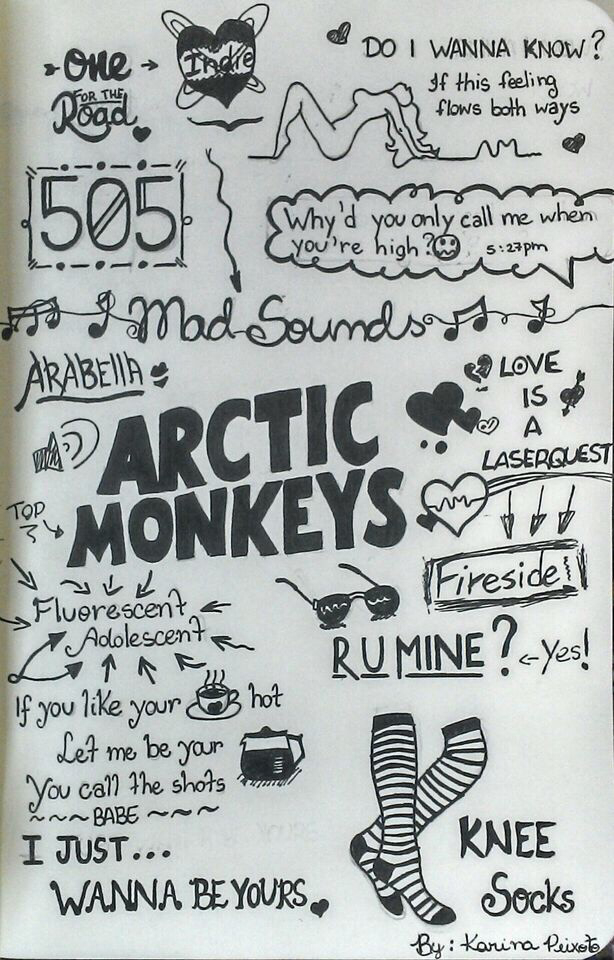 One
FOR THE
Road
Indie
DO I WANNA KNOW?
If this feeling
flows both ways
505
Why'd you only call me when
you're high? 5:27pm
Mad Sounds
ARABELLA
LOVE
IS
A
LASERQUEST
ARCTIC
MONKEYS
TOP
3
Fireside!
Fluorescent
Adolescent
R U MINE? Yes!
If you like your hot
Let me be your
You call the shots
~~~ BABE ~~~
I JUST...
WANNA BE YOURS
KNEE
Socks
By: Karina Peixoto